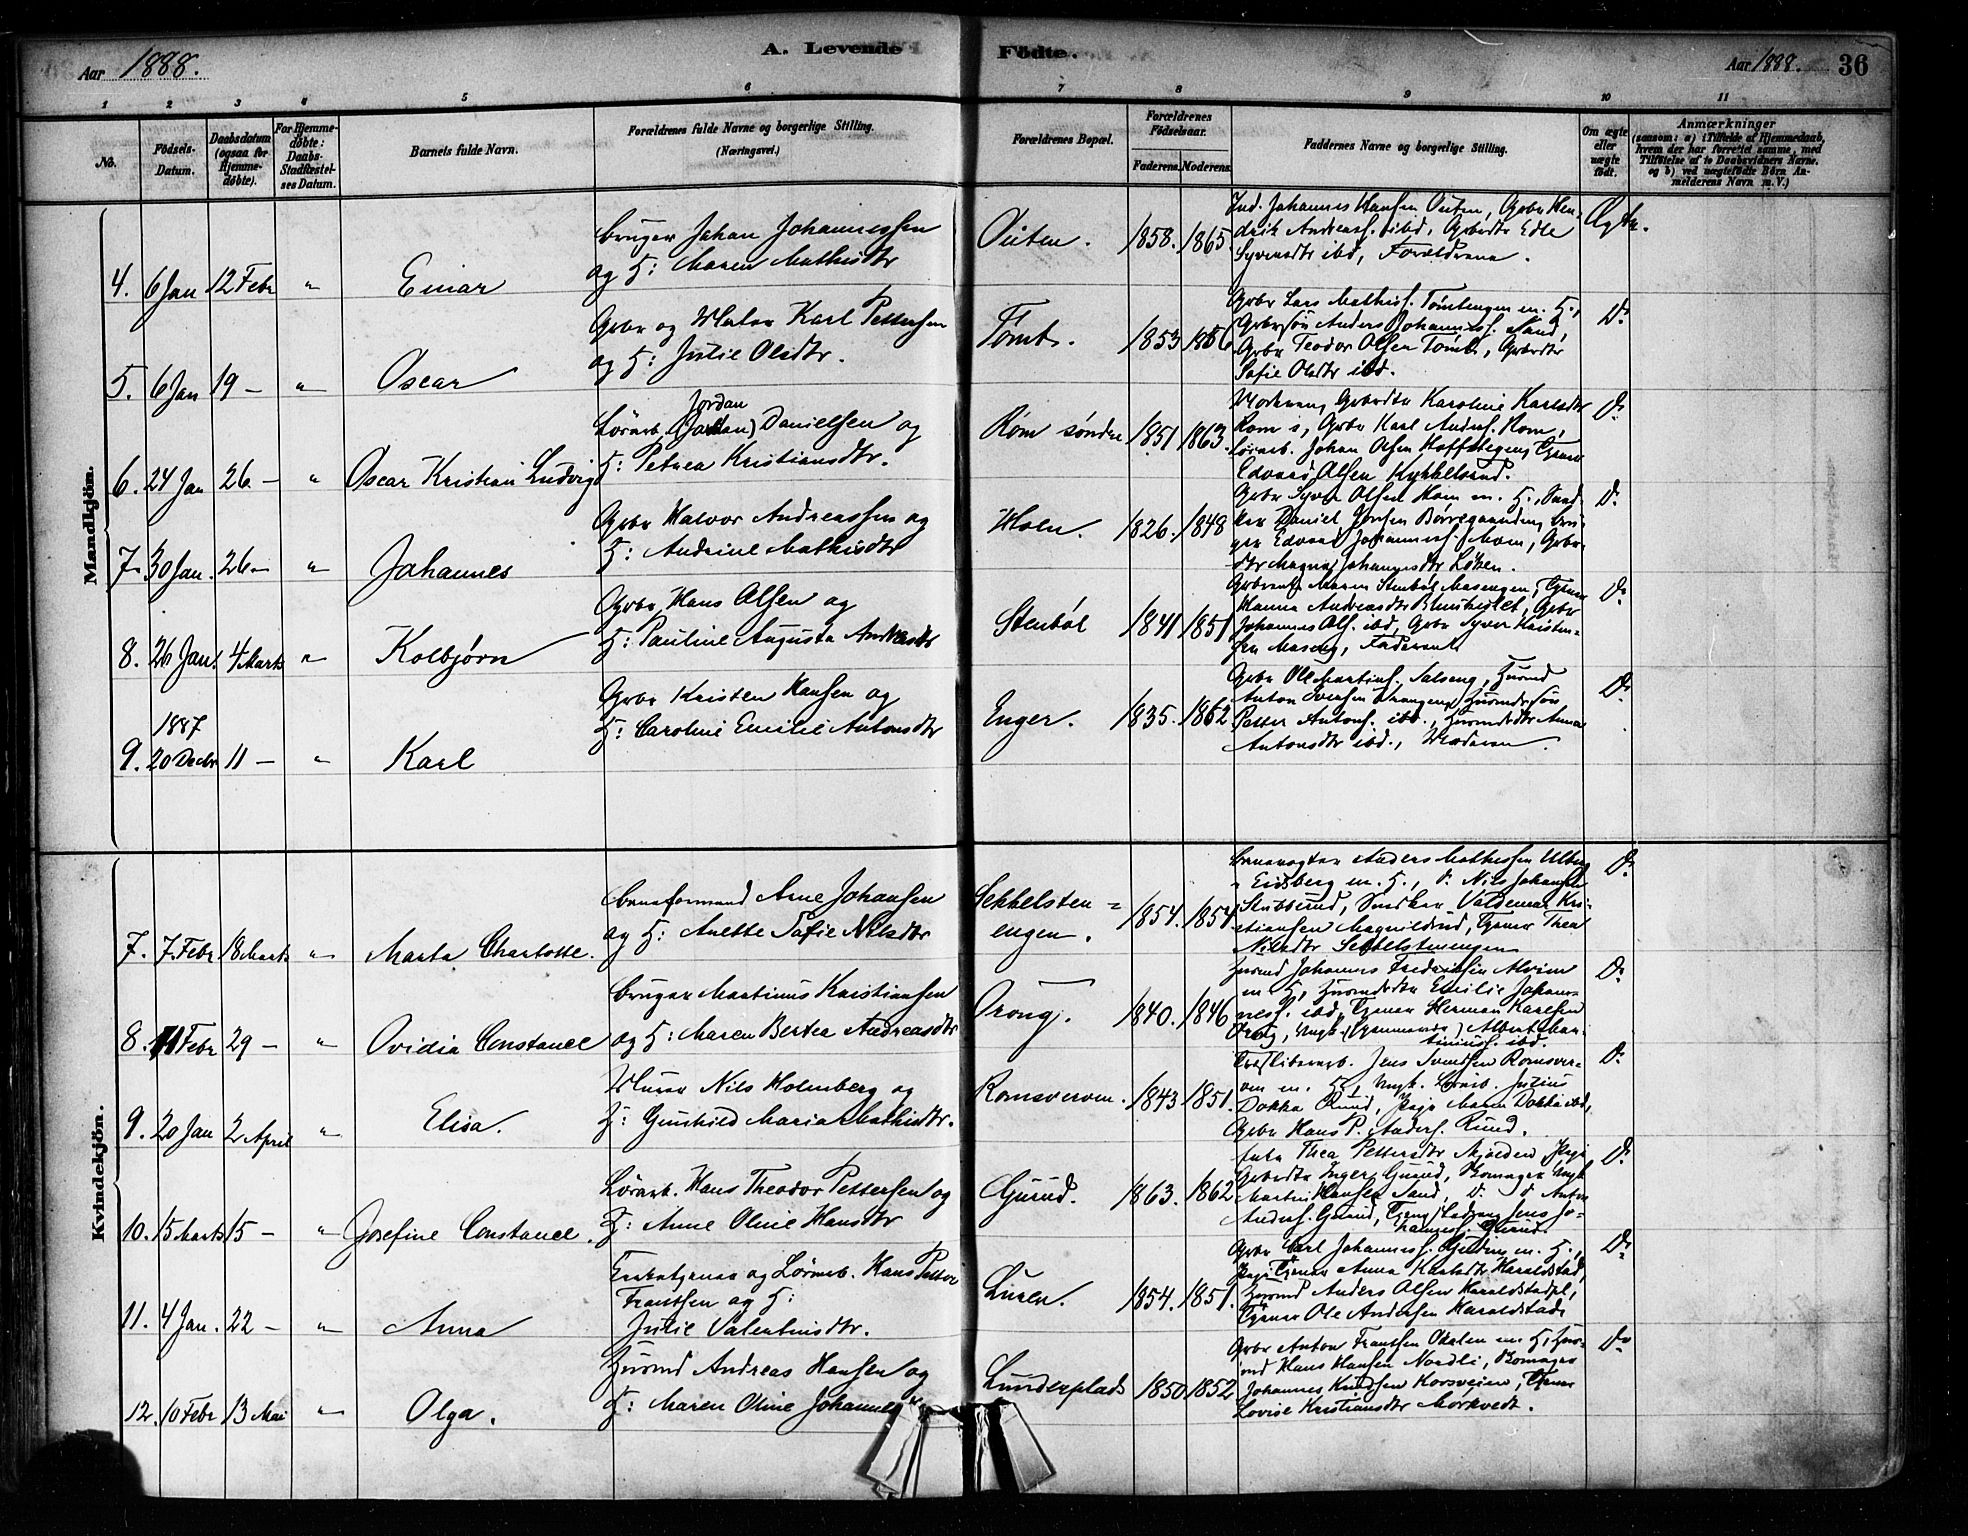 Aar 1888.
A. Levende Födte.
Aar 1888. 36
1 2 3 4 5 6 7 8 9 10 11
No.
Födsels-Datum.
Daabsdatum (ogsaa for Hjemmedøbte).
For Hjemmedøbte: Daabs-Stadfæstelses Datum.
Barnets fulde Navn.
Forældrenes fulde Navne og borgerlige Stilling.
(Næringsvei.)
Forældrenes Bopæl.
Forældrenes Födselsaar.
Faderens. Moderens.
Faddernes Navne og borgerlige Stilling.
Om ægte eller uægte födt.
Anmærkninger
(saasom: a) i Tilfælde af Hjemmedaab,
hvem der har forrettet samme, med
Tilföielse af to Daabsvidners Navne.
og b) ved uægtefödte Börn Anmelderens Navn m. V.)
Mandkjön.
4. 6 Jan 12 Febr " Einar
Bruger Johan Johannessen
og H: Maren Mathisdtr
Outen. 1858. 1865
Ind. Johannes Hansen Outen, Gbr Hendrik Andreass. ibd, Gbrdtr Edle
Syversdtr ibd, Forældrene.
Ægte.
5. 6 Jan 19 – " Oscar
Gbr og Maler Karl Pettersen
og H: Julie Olsdtr.
Tomt. 1853 1856
Gbr Lars Mathiss. Tomtengen m. H.,
Gbrsøn Anders Johanness. Sand,
Gbr Teodor Olsen Tomt, Gbrdtr
Sofie Olsdtr ibd.
Do
6. 24 Jan 26 – " Oscar Kristian Ludvig
Lørarb. Jordan (Johan) Danielsen og
H: Petrea Kristiansdtr.
Rom søndre 1851 1863.
Karoline Karlsdtr
Rom s, Gbr Karl Anders. Rom,
Lørarb. Johan Olsen
Edvard Olsen Kykkelsrud.
Do
7. 30 Jan. 26 – " Johannes
Gbr Halvor Andreassen og
H: Andrine Mathisdtr
Moen. 1826. 1848
Gbr Syver Olsen Mom m. H., Snedker Daniel Jonsen
Edvard Johanness. Mom, Gbrdtr Magna Johannesdtr Löken.
Do
8. 26 Jan. 4 Marts " Kolbjørn
Gbr Hans Olsen og
H: Pauline Augusta Andreasdtr
Stenböl 1841 1851
Maren Stenböl Masengen, Tjener
Hanna Andreasdtr Gbr
Johannes Ols. ibd, Gbr Syver Kristensen Maseng,
Do
1887
9. 20 Decbr 11 – " Karl
Gbr Kristen Hansen og
H: Caroline Emilie Antonsdtr
Enger. 1835. 1862.
Gbr Ole Martins. Salseng, Husmd
Anton Husmdssøn
Petter Antons. ibd., Husmdsdtr Anna
Antonsdtr ibd., Moderen.
Do
Kvindekjön.
7. 7 Febr 18 Marts " Marta Charlotte.
Baneformand Arne Johansen
og H: Anette Sofie Nilsdtr
Sekkelstenengen. 1854. 1854
Banevogter Anders Mathissen
i Eidsberg m. H., Do Nils Johansen
Stubberud, Snedker Valdemar Kristiansen Magnildrud, Tjener Thea
Nilsdtr Sekkelstenengen
Do
8. 11 Febr 29 – " Ovidia Constance
Bruger Martinus Kristiansen
og H: Maren Bertea Andreasdtr
Orong. 1840. 1846
Husmd Johannes Fredriksen Alvim
m. H, Husmdsdtr Emilie Johanness. ibd, Tjener Herman Karlsen
Orong, Ungk. Albert Martiniuss. ibd.
Do
9. 20 Jan 2 April " Elisa.
Murer Nils Holmberg og
H: Gunhild Maria Mathisdtr.
Romsverven. 1843 1851.
Træsliberarb. Jens Svendsen Romsverven m. H, Ungk. Lörarb. Julius
Dokka Ruud, Pige Maren Dokka ibd,
Gbr Hans P. Anders. Ruud.
Do
10. 15 Marts 15 – " Josefine Constance.
Lørarb. Hans Theodor Pettersen og
H: Anne Oline Hansdtr
Gurud. 1863. 1862
Enke Thea Pettersdtr Mjölden, Pige
Gbrdtr Inger Gurud, Skomager Ungk
Martin Hansen Sand, Do Do Anton
Anders. Gurud, Jens Johanness. Gurud.
Do
11. 4 Jan. 22 – " Anna
og Lørarb. Hans Petter
Frantsen og H:
Julie Valentinsdtr.
Luren. 1854. 1851.
Gbr Carl Johanness. m. H.,
Pige Tjener Anna Karlsdtr Haraldstad,
Husmd Anders Olsen Haraldstadpl,
Tjener Ole Andersen Haraldstad
Do
12. 10 Febr 13 Mai " Olga.
Husmd Andreas Hansen og
H: Maren Oline Johannes
Lunderplads 1850 1852
Gbr Anton Frantsen m. H, Husmd Hans Hansen Nordli, Skomager
Johannes Knudsen Korsveien, Tjener
Lovise Kristiansdtr Mörkvedt.
Do